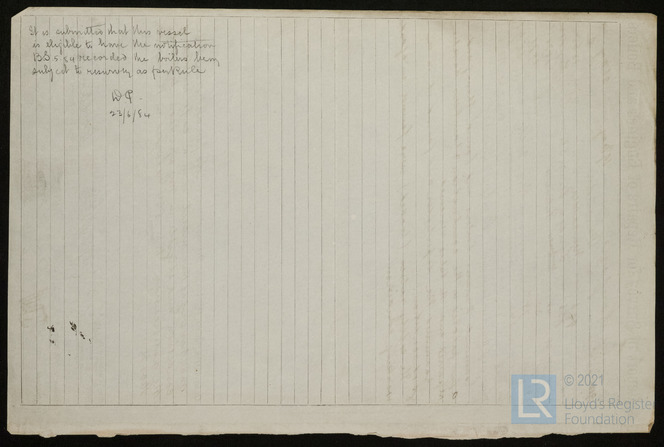 It is submitted that this vessel
is eligible to have the notification
BS 5.84 recorded the boilers being
subject to resurvey as per Rule
23/6/84
LR
© 2021
Lloyd's Register
Foundation